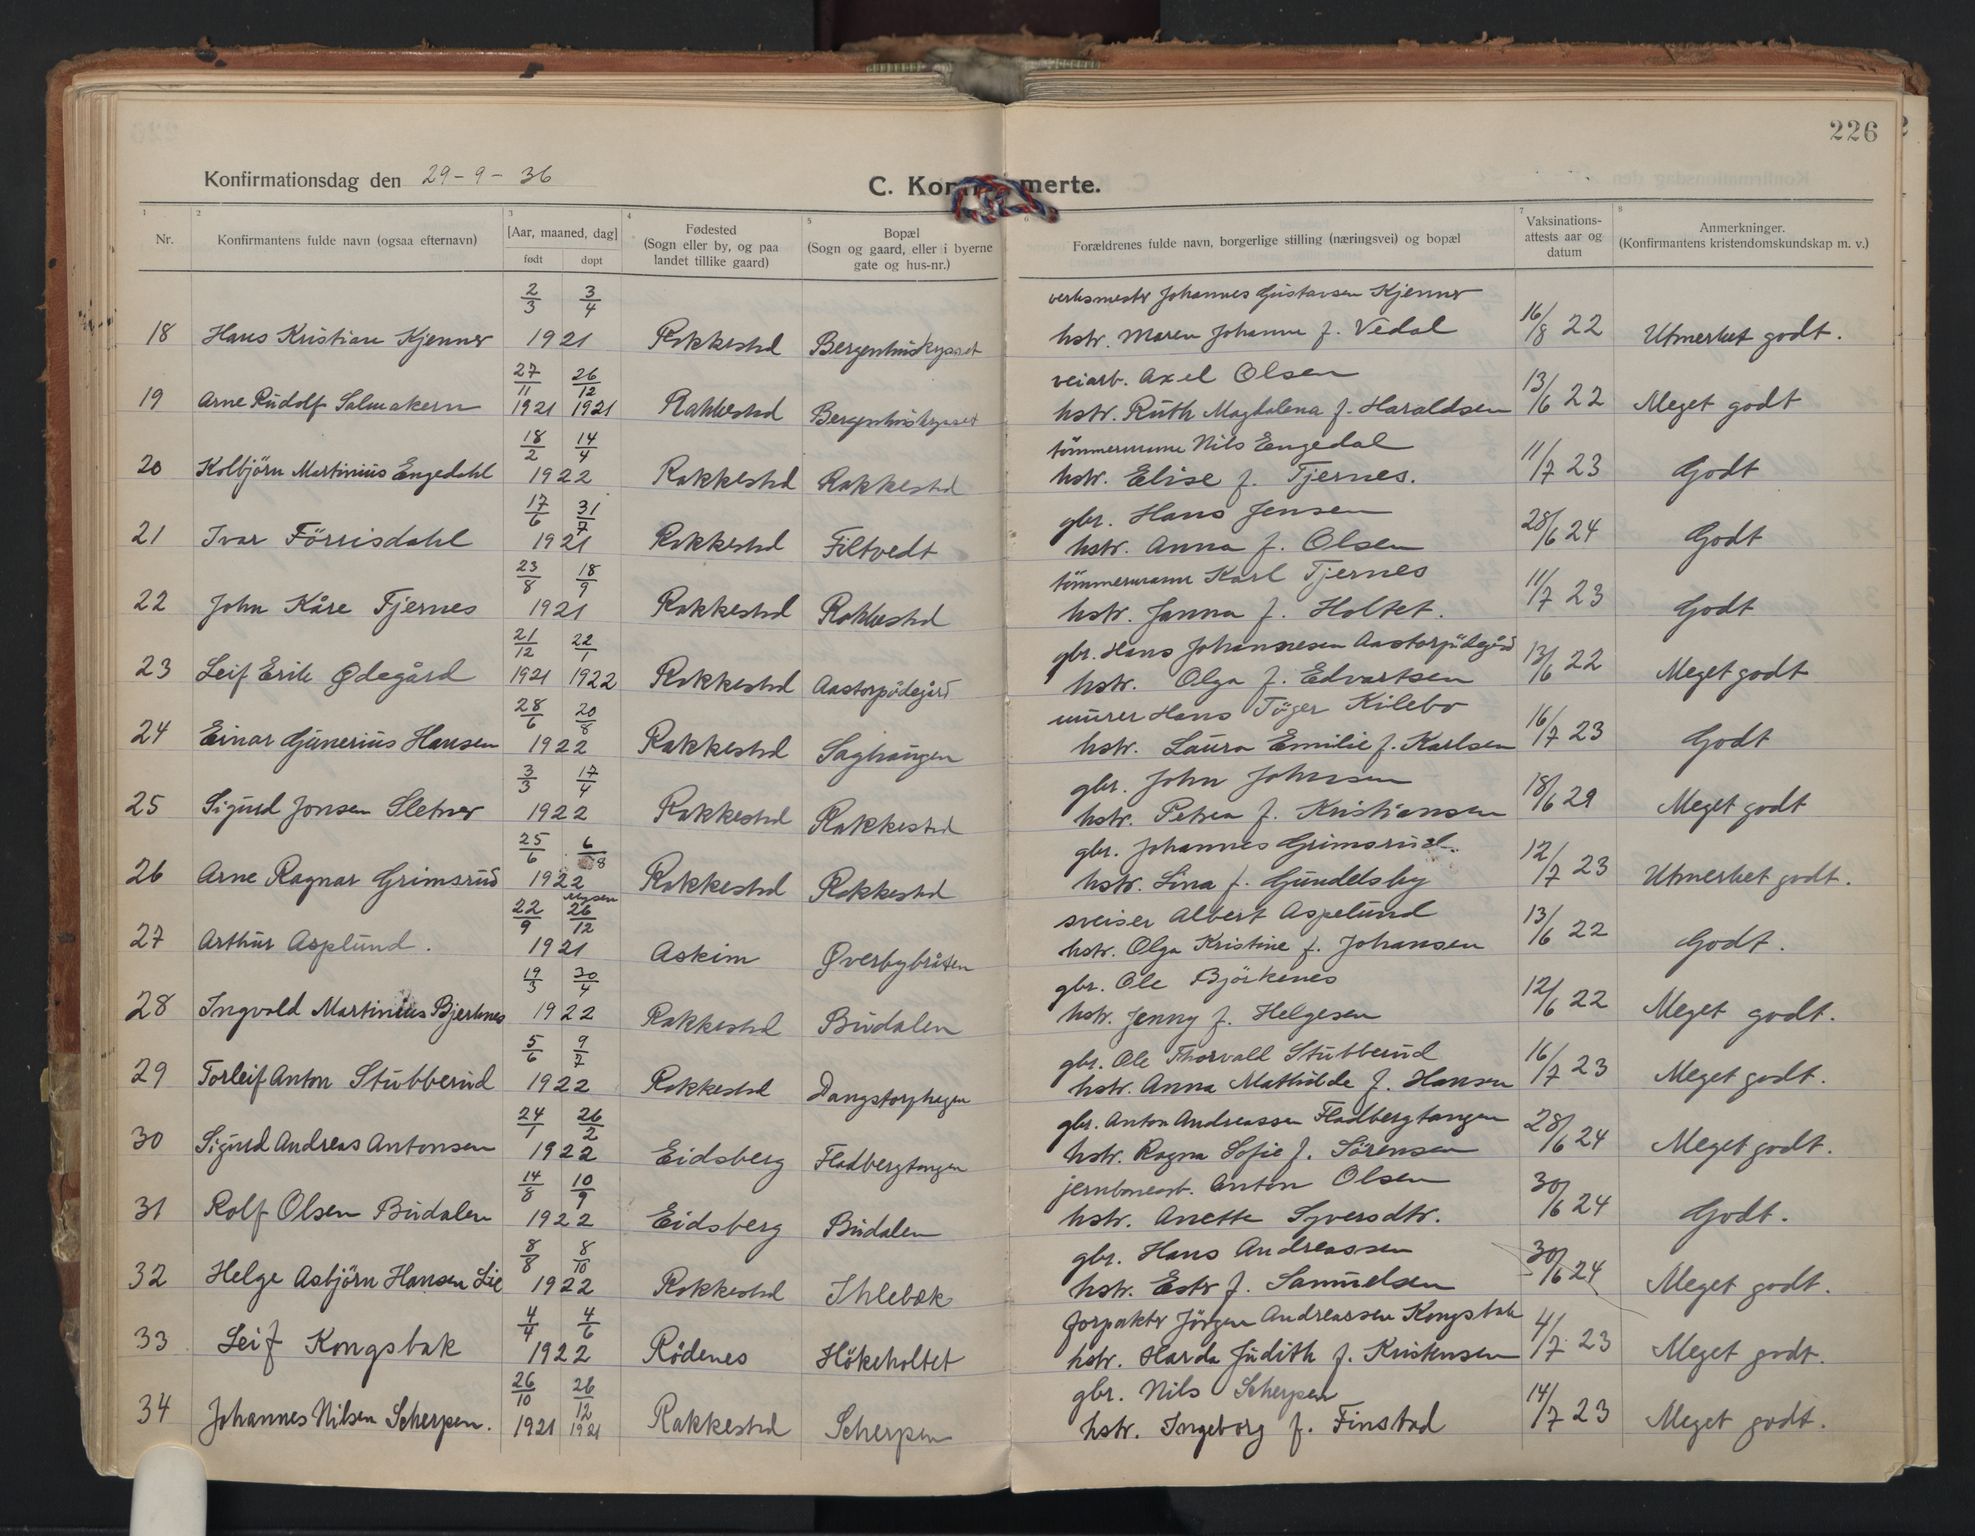 226
Konfirmationsdag den 29-9-36
C. Kon merte.
1 2 3 4 5 6 7 8
Nr.
Konfirmantens fulde navn (ogsaa efternavn)
[Aar, maaned, dag]
født døpt
Fødested
(Sogn eller by, og paa
landet tillike gaard)
Bopæl
(Sogn og gaard, eller i byerne
gate og hus-nr.)
Forældrenes fulde navn, borgerlige stilling (næringsvei) og bopæl
Vaksinations-
attests aar og
datum
Anmerkninger.
(Konfirmantens kristendomskundskap m. v.)
2/3 3/4 verksmestr Johannes Gustavsen Kjenner
18 Hans Kristian Kjenner 1921 Rakkestad Bergenhuskrysset hstr. Maren Johanne f. Vedal 16/8 22 Utmerket godt.
27/11 26/12 veiarb. Axel Olsen
19 Arne Rudolf Salmakern 1921 1921 Rakkestad Bergenhuskrysset hstr. Ruth Magdalena f. Haraldsen 13/6 22 Meget godt
18/2 14/4 tömmermann Nils Engedal
20 Kolbjörn Martinius Engedahl 1922 Rakkestad Rakkestad hstr. Elise f. Tjernes. 11/7 23 Godt
17/6 31/7 gbr. Hans Jensen
21 Ivar Förrisdahl 1921 Rakkestad Filtvedt hstr. Anna f. Olsen 28/6 24 Godt
23/8 18/9 tömmermann Karl Tjernes
22 John Kåre Tjernes 1921 Rakkestad Rakkestad hstr. Janna f. Holtet. 11/7 23 Godt
21/12 22/1 gbr. Hans Johannesen Aastorpödegård
23 Leif Erik Ødegård 1921 1922 Rakkestad Aastorpödegård hstr. Olga f. Edvartsen 13/6 22 Meget godt
28/6 20/8 murer Hans Töger Kilebo
24 Einar Gunerius Hansen 1922 Rakkestad Saghaugen hstr. Laura Emilie f. Karlsen 16/7 23 Godt
3/3 17/4 gbr. John Johnsen
25 Sigurd Jonsen Sletner 1922 Rakkestad Rakkestad hstr. Petrea f. Kristiansen 18/6 29 Meget godt
25/6 6/8 gbr. Johannes Grimsrud.
26 Arne Ragnar Grimsrud 1922 Rakkestad Rakkestad hstr. Lina f. Gundelsby 12/7 23 Utmerket godt.
22/9 Mysen 26/12 sveiser Albert Aspelund
27 Arthur Asplund. 1921 Askim Øverbybråten hstr. Olga Kristine f. Johansen 13/6 22 Godt.
19/3 30/4 gbr. Ole Björkenes
28 Ingvald Martinius Bjerknes 1922 Rakkestad Budalen hstr. Jenny f. Helgesen 12/6 22 Meget godt.
5/6 9/7 gbr. Ole Thorvald Stubberud
29 Torleif Anton Stubberud 1922 Rakkestad Dangstorphagen hstr. Anna Mathilde f. Hansen 16/7 23 Meget godt.
24/1 26/2 gbr. Anton Andreassen Fladbergtangen
30 Sigurd Andreas Antonsen 1922 Eidsberg Fladbergtangen hstr. Ragna Sofie f. Sörensen 28/6 24 Meget godt.
14/8 10/9 jernbanearb. Anton Olsen
31 Rolf Olsen Budalen 1922 Eidsberg Budalen hstr. Anette Syversdtr. 30/6 24 Godt.
8/8 8/10 gbr. Hans Andreassen
32 Helge Asbjörn Hansen Lie 1922 Rakkestad Ihlebæk hstr. Estr f. Samuelsen 30/6 24 Meget godt.
4/4 4/6 forpaktr Jörgen Andreassen Kongsbak
33 Leif Kongsbak 1922 Rödenes Hökeholtet hstr. Harda Judith f. Kristensen 4/7 23 Meget godt.
26/10 26/12 gbr. Nils Scherpen
34 Johannes Nilsen Scherpen. 1921 1921 Rakkestad Scherpen hstr. Ingeborg f. Finstad 14/7 23 Meget godt.